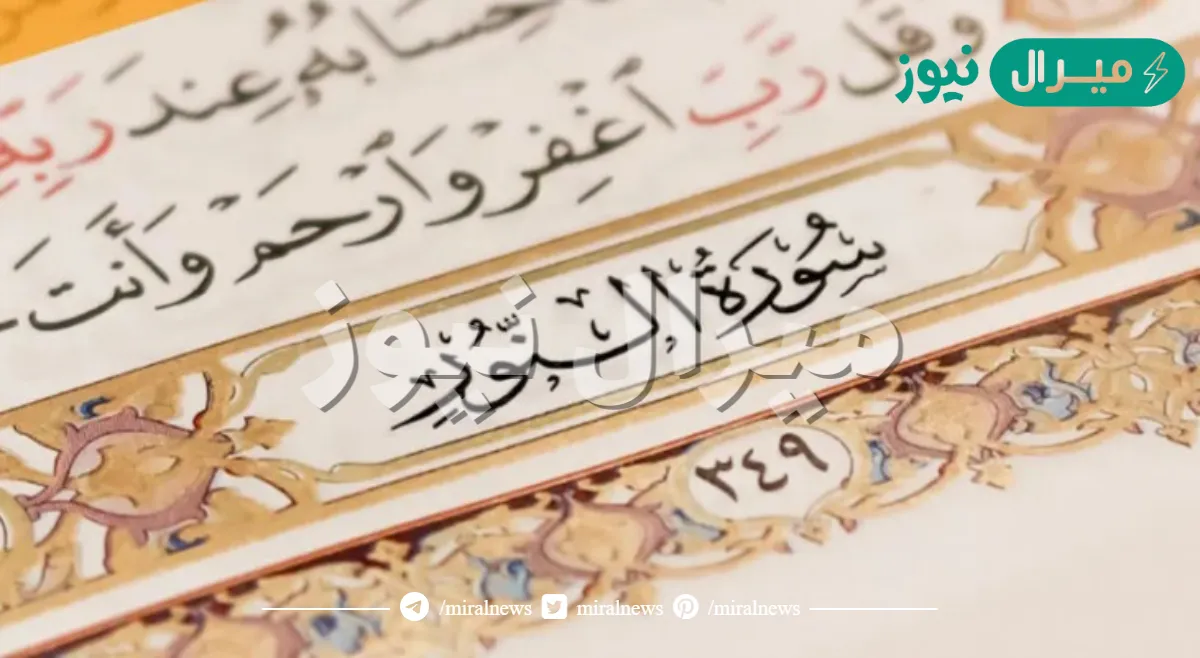 ميرال نيوز
حسابهۥ عند ربهۦ
وقل رَّبِّ ٱغۡفِرۡ وَٱرۡحَمۡ وَأَنتَ
سُورَةُ النُّورِ
ميرال نيوز
٣٤٩
/miralnews miralnews /miralnews